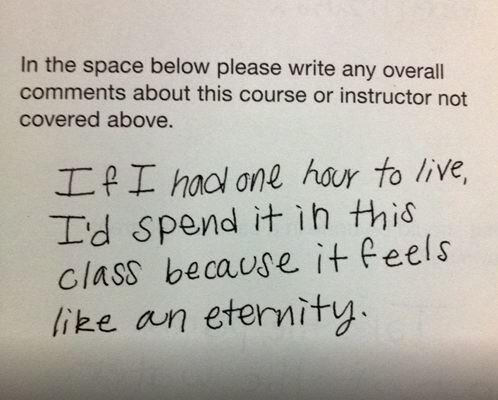 In the space below please write any overall
comments about this course or instructor not
covered above.
If I had one hour to live,
I'd spend it in this
class because it feels
like an eternity.